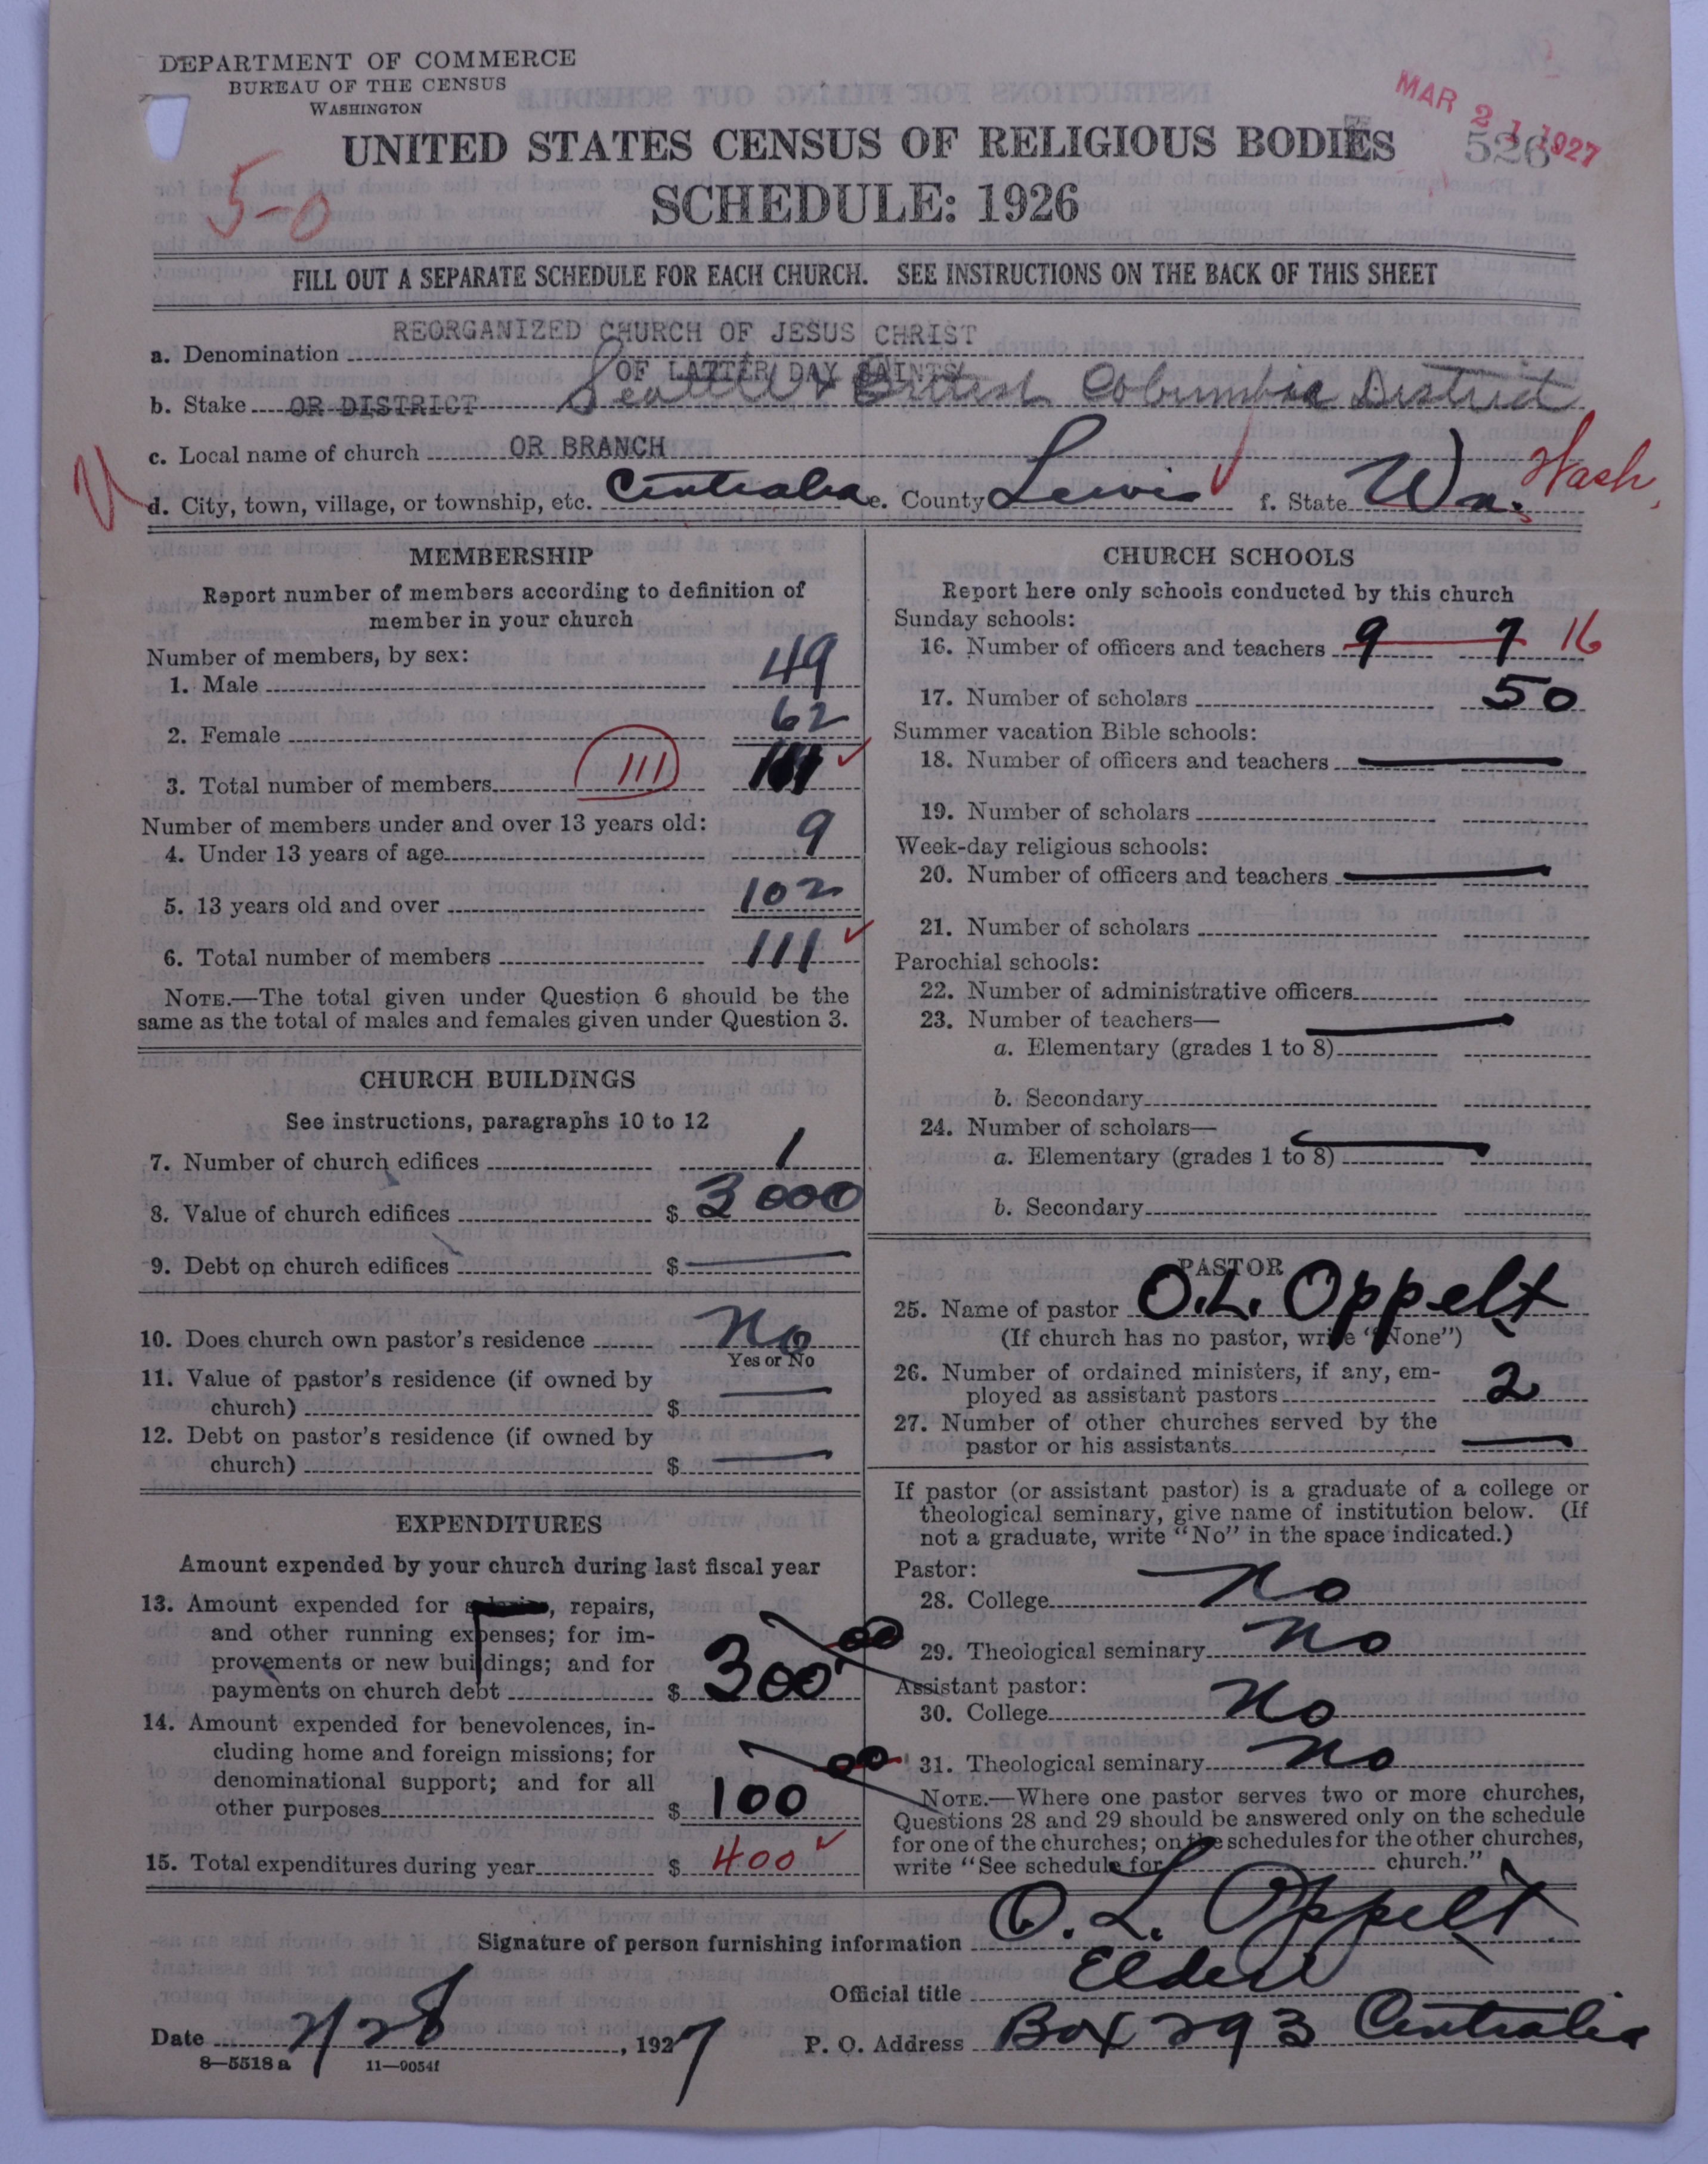 DEPARTMENT OF COMMERCE
BUREAU OF THE CENSUS
WASHINGTON
MAR 21 1927
526
UNITED STATES CENSUS OF RELIGIOUS BODIES
SCHEDULE: 1926
5-0
FILL OUT A SEPARATE SCHEDULE FOR EACH CHURCH. SEE INSTRUCTIONS ON THE BACK OF THIS SHEET
REORGANIZED CHURCH OF JESUS CHRIST
a. Denomination
OF LATTER DAY SAINTS
b. Stake OR DISTRICT Seattle & British Columbia District
c. Local name of church OR BRANCH
d. City, town, village, or township, etc. Centralia e. County Lewis f. State Wn. Wash.
MEMBERSHIP
Report number of members according to definition of
member in your church
Number of members, by sex:
1. Male 49
2. Female 62
3. Total number of members 111 111
Number of members under and over 13 years old:
4. Under 13 years of age 9
5. 13 years old and over 102
6. Total number of members 111
NOTE.—The total given under Question 6 should be the
same as the total of males and females given under Question 3.
CHURCH BUILDINGS
See instructions, paragraphs 10 to 12
7. Number of church edifices 1
8. Value of church edifices $ 3000
9. Debt on church edifices $ —
10. Does church own pastor's residence No
Yes or No
11. Value of pastor's residence (if owned by
church) $ —
12. Debt on pastor's residence (if owned by
church) $ —
EXPENDITURES
Amount expended by your church during last fiscal year
13. Amount expended for salaries, repairs,
and other running expenses; for im-
provements or new buildings; and for
payments on church debt $ 300 00
14. Amount expended for benevolences, in-
cluding home and foreign missions; for
denominational support; and for all
other purposes $ 100 00
15. Total expenditures during year $ 400
CHURCH SCHOOLS
Report here only schools conducted by this church
Sunday schools:
16. Number of officers and teachers 9 7 16
17. Number of scholars 50
Summer vacation Bible schools:
18. Number of officers and teachers —
19. Number of scholars
Week-day religious schools:
20. Number of officers and teachers —
21. Number of scholars
Parochial schools:
22. Number of administrative officers
23. Number of teachers— —
a. Elementary (grades 1 to 8)
b. Secondary
24. Number of scholars— —
a. Elementary (grades 1 to 8)
b. Secondary
PASTOR
25. Name of pastor O.L. Oppelt
(If church has no pastor, write "None")
26. Number of ordained ministers, if any, em-
ployed as assistant pastors 2
27. Number of other churches served by the
pastor or his assistants —
If pastor (or assistant pastor) is a graduate of a college or
theological seminary, give name of institution below. (If
not a graduate, write "No" in the space indicated.)
Pastor:
28. College No
29. Theological seminary No
Assistant pastor:
30. College No
31. Theological seminary No
NOTE.—Where one pastor serves two or more churches,
Questions 28 and 29 should be answered only on the schedule
for one of the churches; on the schedules for the other churches,
write "See schedule for church."
Signature of person furnishing information O. L. Oppelt
Official title Elder
Date 2/28, 1927 P. O. Address Box 293 Centralia
8—5518a 11—9054f